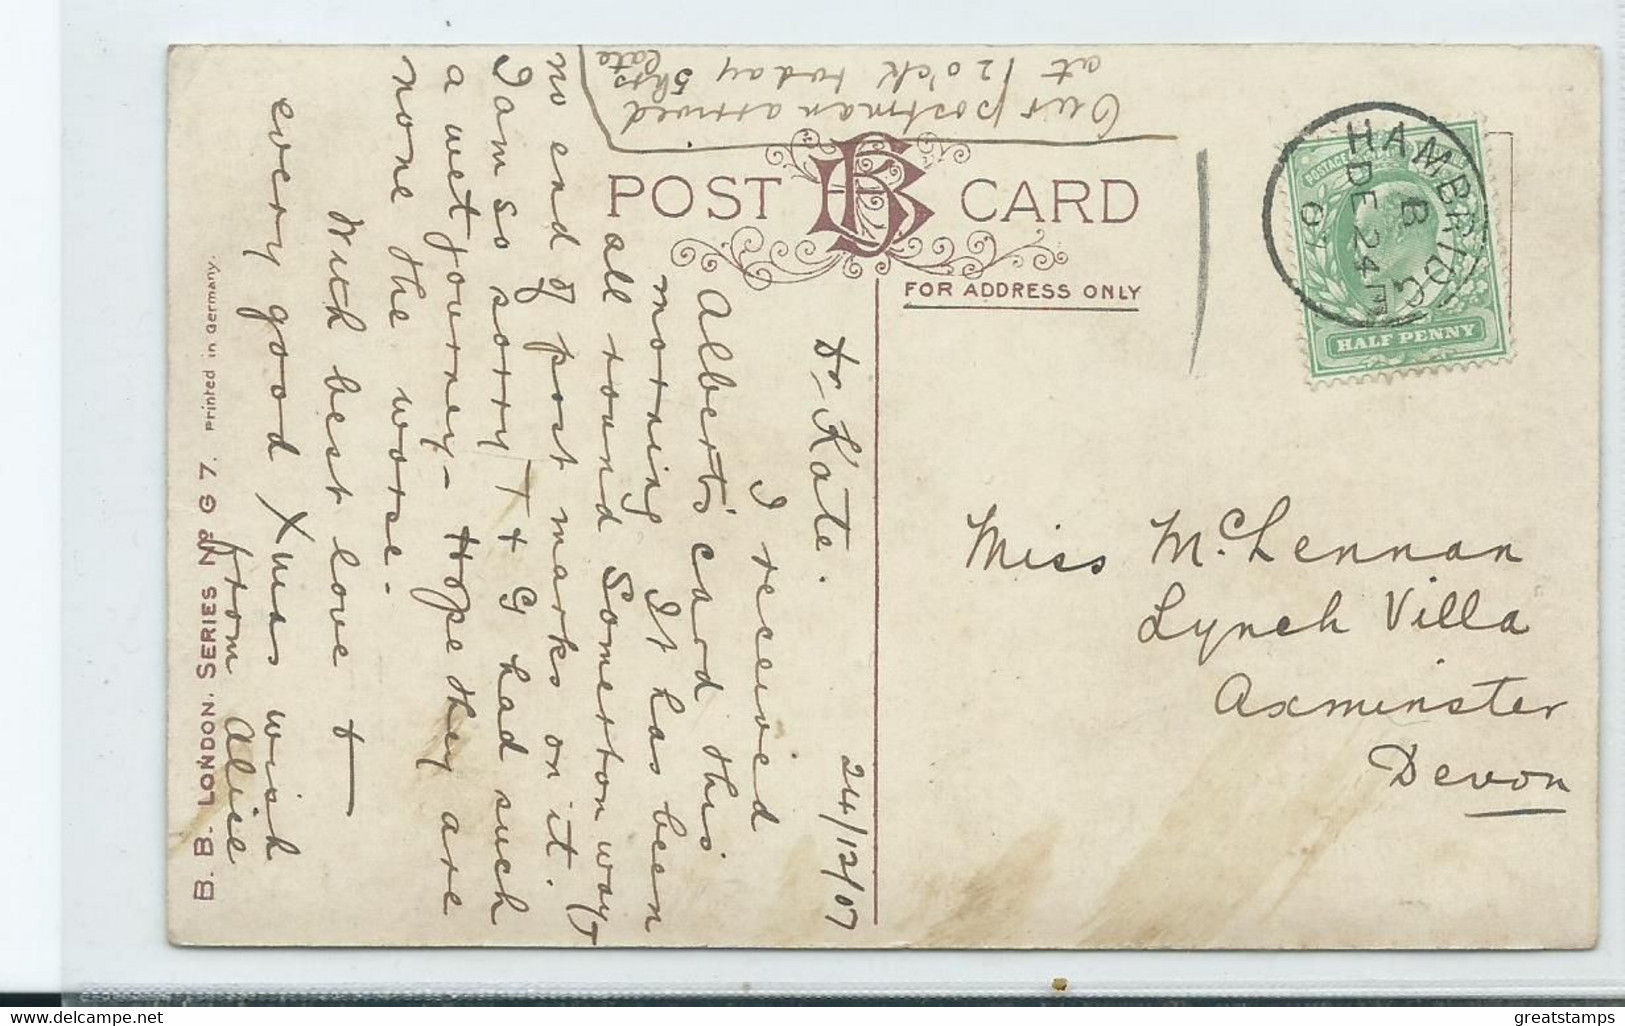 Our postman arrived
at 12 o'ck today 5 hrs
late
POST CARD
FOR ADDRESS ONLY
HAMBRIDGE
B
DE 24
07
POSTAGE
HALF PENNY
24/12/07
Dr Kate.
I received
Albert's card this
morning It has been
all round Somerton way &
no end of post marks on it.
I am so sorry T & G had such
a wet journey - Hope they are
none the worse -
With best love &
every good Xmas wish
from Alice
Miss McLennan
Lynch Villa
Axminster
Devon
B. B. LONDON. SERIES No G 7. Printed in Germany.
www.delcampe.net
greatstamps